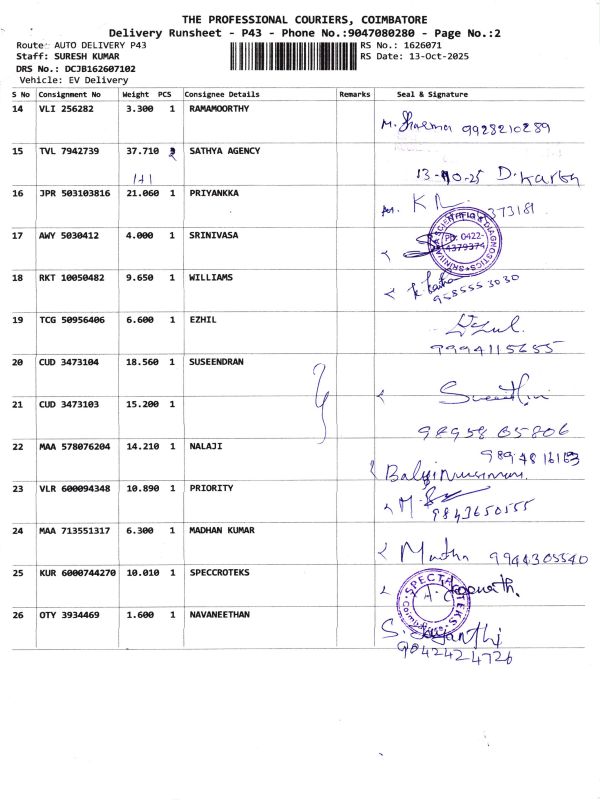 THE PROFESSIONAL COURIERS, COIMBATORE
Delivery Runsheet - P43 - Phone No.:9047080280 - Page No.:2
Route: AUTO DELIVERY P43 RS No.: 1626071
Staff: SURESH KUMAR RS Date: 13-Oct-2025
DRS No.: DCJB162607102
Vehicle: EV Delivery
S No Consignment No Weight PCS Consignee Details Remarks Seal & Signature
14 VLI 256282 3.300 1 RAMAMOORTHY
M. Sharma 9928210289
15 TVL 7942739 37.710 2 SATHYA AGENCY
1+1 13-10-25 D. Karthi
16 JPR 503103816 21.060 1 PRIYANKKA
373181
17 AWY 5030412 4.000 1 SRINIVASA
SRINIVASA SCIENTIFIC & DIAGNOSTICS
PD: 0422-
4379374
18 RKT 10050482 9.650 1 WILLIAMS
9685553030
19 TCG 50956406 6.600 1 EZHIL
Ezul.
9994115655
20 CUD 3473104 18.560 1 SUSEENDRAN
21 CUD 3473103 15.200 1
98958 65806
22 MAA 578076204 14.210 1 NALAJI
98948 16163
23 VLR 600094348 10.890 1 PRIORITY
9843650555
24 MAA 713551317 6.300 1 MADHAN KUMAR
Madha 9944305540
25 KUR 6000744270 10.010 1 SPECCROTEKS
26 OTY 3934469 1.600 1 NAVANEETHAN
S. Jayanthi
9042424726